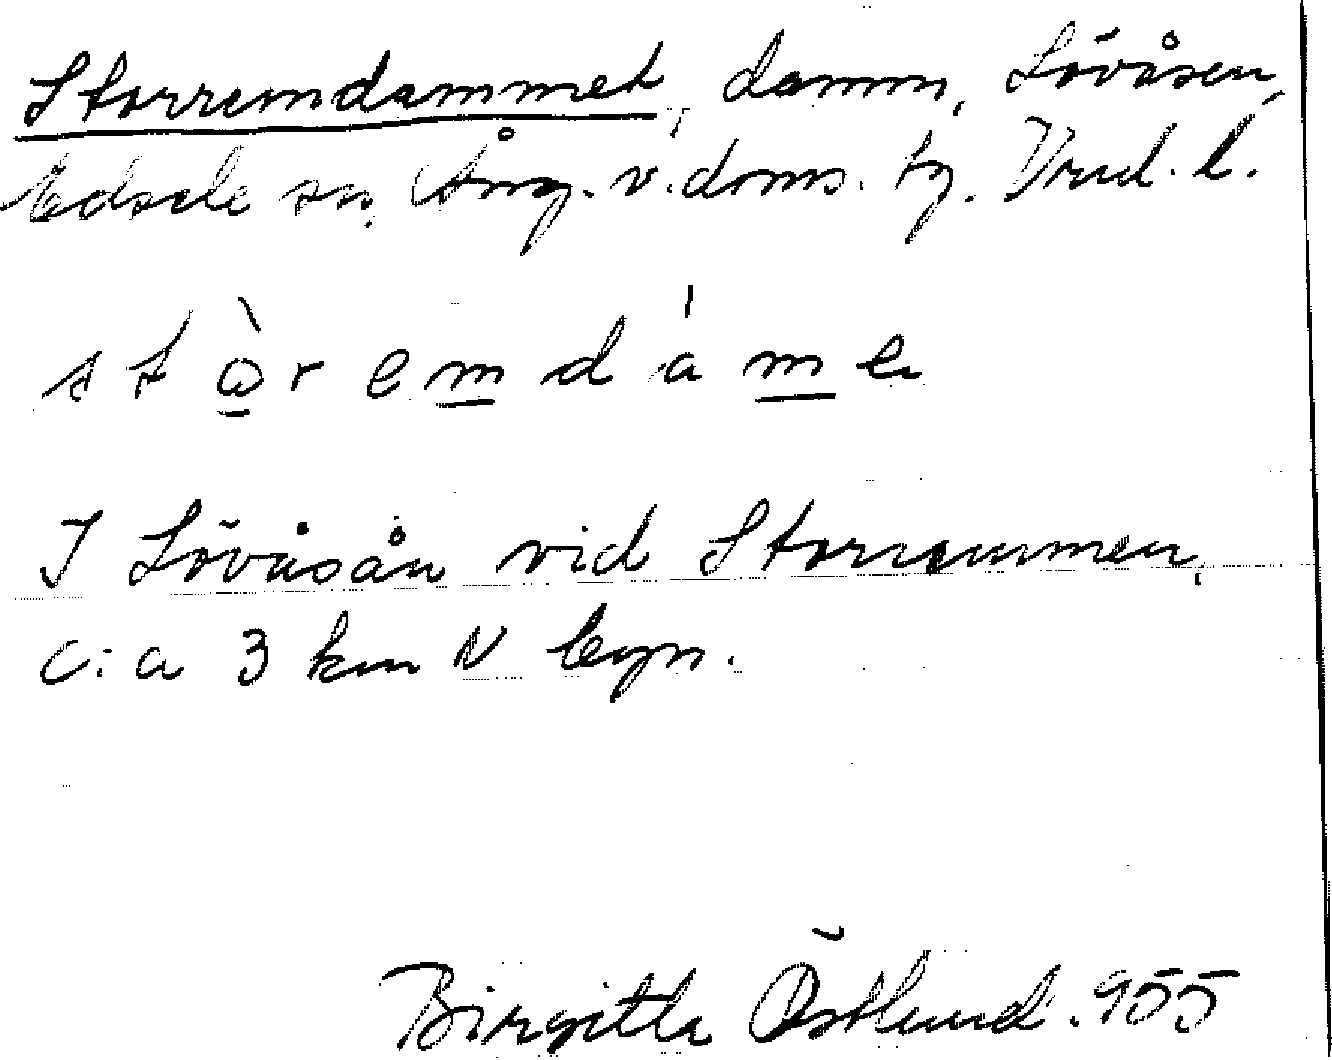 Storremdammet, damm, Lövåsen,
Edsele sn, Ång. v. doms. tg. Vnd. l.
stòremdáme
I Lövåsån vid Storremmen,
c:a 3 km N byn.
Birgitta Östlund. 955